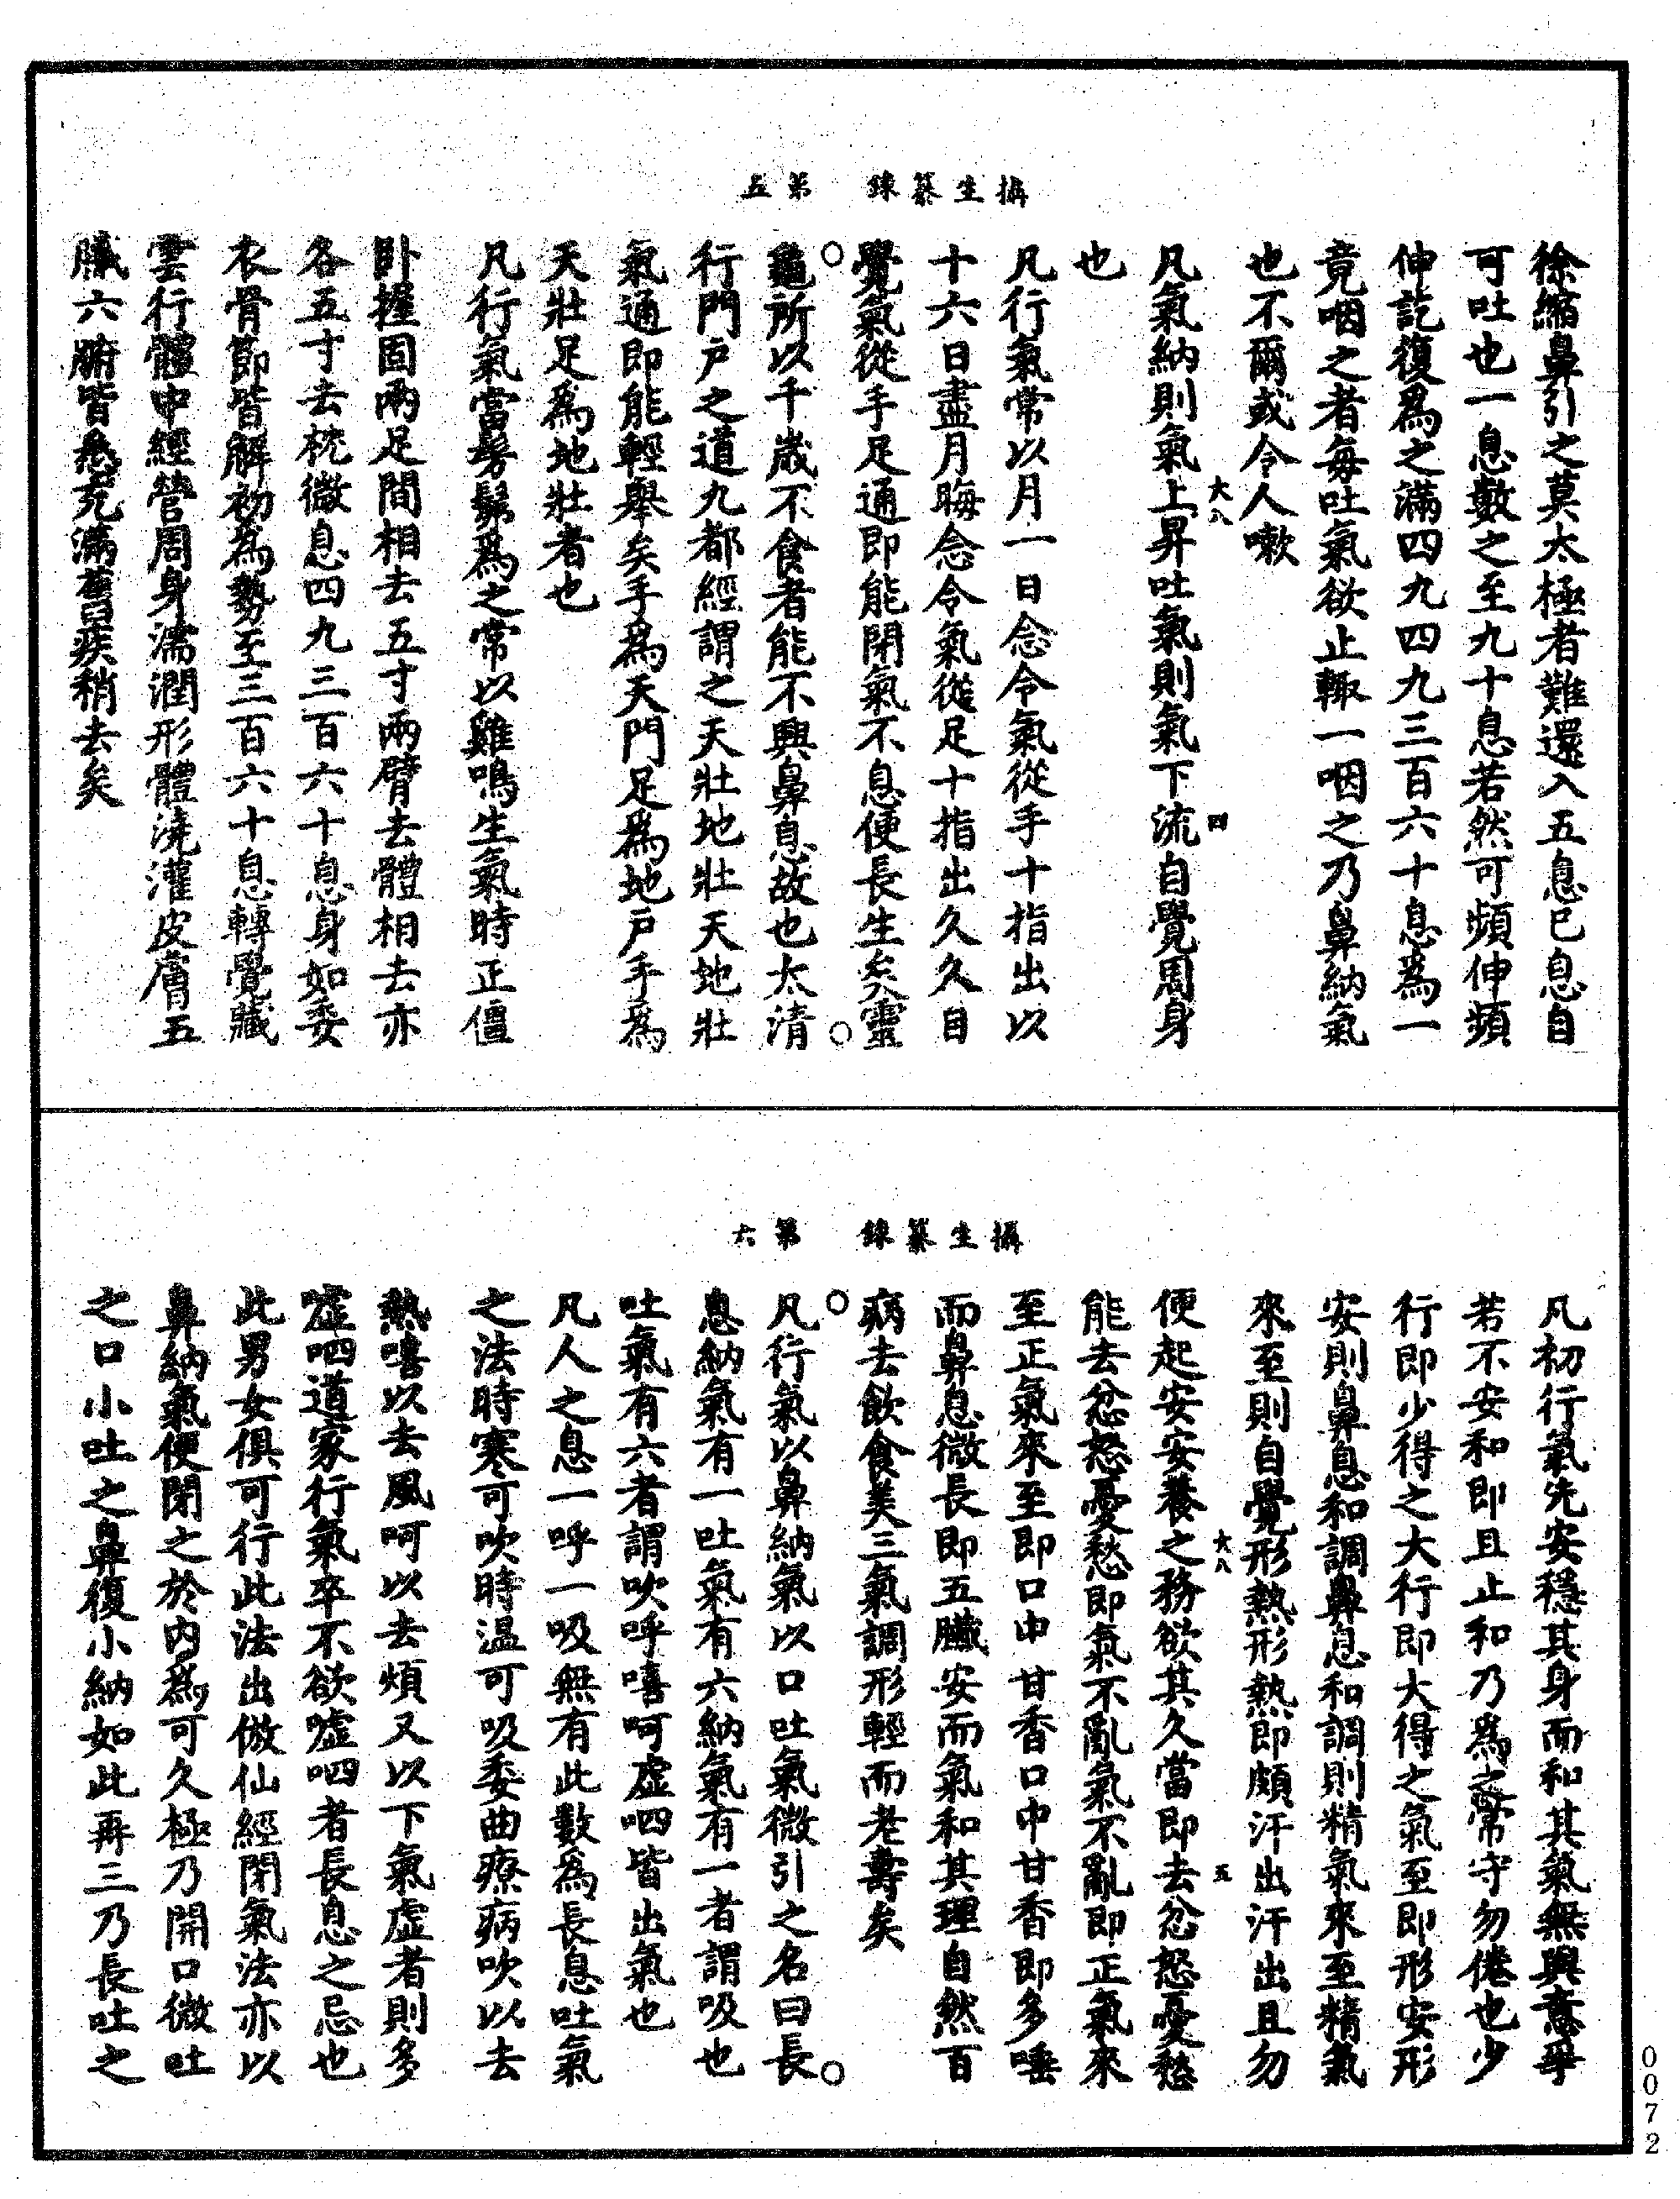 攝生纂錄　第五
徐縮鼻引之莫太極者難還入五息已息自
可吐也一息數之至九十息若然可頻伸頻
伸訖復爲之滿四九四九三百六十息爲一
竟咽之者每吐氣欲止輙一咽之乃鼻納氣
也不爾或令人嗽
大八　四
凡氣納則氣上昇吐氣則氣下流自覺周身
也
凡行氣常以月一日念令氣從手十指出以
十六日盡月晦念令氣從足十指出久久自
覺氣從手足通即能閉氣不息便長生矣靈
龜所以千歲不食者能不興鼻息故也太清
行門戶之道九都經謂之天壯地壯天地壯
氣通即能輕舉矣手爲天門足爲地戶手爲
天壯足爲地壯者也
凡行氣當髣髴爲之常以雞鳴生氣時正僵
卧握固兩足間相去五寸兩臂去體相去亦
各五寸去枕微息四九三百六十息身如委
衣骨節皆解初爲勢至三百六十息轉覺藏
雲行體中經營周身濡潤形體澆灌皮膚五
臟六腑皆悉充滿舊疾稍去矣
攝生纂錄　第六
凡初行氣先安穩其身而和其氣無與意爭
若不安和即且止和乃爲之常守勿倦也少
行即少得之大行即大得之氣至即形安形
安則鼻息和調鼻息和調則精氣來至精氣
來至則自覺形熱形熱即頗汗出汗出且勿
大八　五
便起安安養之務欲其久當即去忿怒憂愁
能去忿怒憂愁即氣不亂氣不亂即正氣來
至正氣來至即口中甘香口中甘香即多唾
而鼻息微長即五臟安而氣和其理自然百
病去飲食美三氣調形輕而老壽矣
凡行氣以鼻納氣以口吐氣微引之名曰長
息納氣有一吐氣有六納氣有一者謂吸也
吐氣有六者謂吹呼嘻呵虛呬皆出氣也
凡人之息一呼一吸無有此數爲長息吐氣
之法時寒可吹時温可吸委曲療病吹以去
熱嘻以去風呵以去煩又以下氣虛者則多
噓呬道家行氣卒不欲噓呬者長息之忌也
此男女俱可行此法出倣仙經閉氣法亦以
鼻納氣便閉之於內爲可久極乃開口微吐
之口小吐之鼻復小納如此再三乃長吐之
0072